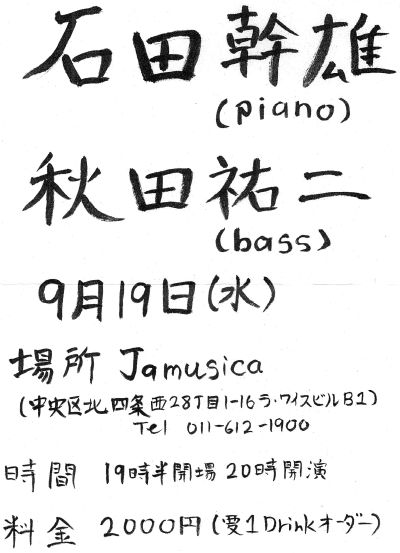 石田幹雄
(piano)
秋田祐二
(bass)
9月19日(水)
場所 Jamusica
(中央区北四条西28丁目1-16ラ・ワイスビルB1)
Tel 011-612-1900
時間 19時半開場 20時開演
料金 2000円(要1Drinkオーダー)